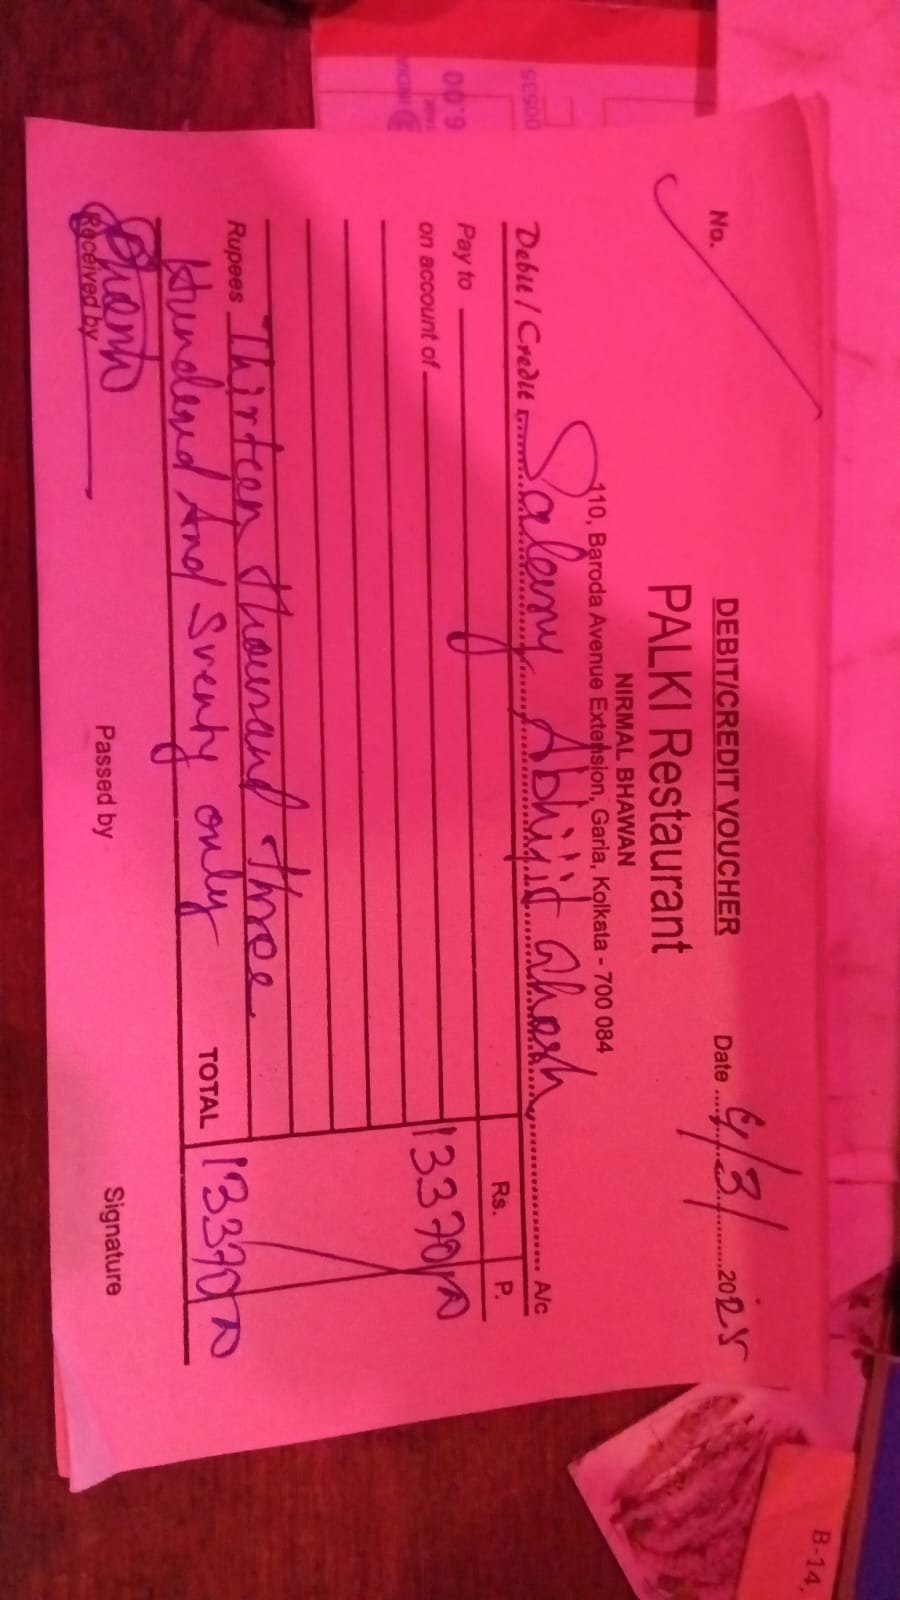 No.
DEBIT/CREDIT VOUCHER
Date 6/3/2025
PALKI Restaurant
NIRMAL BHAWAN
110, Baroda Avenue Extension, Garia, Kolkata - 700 084
Debit / Credit Salary Abhijit Ghosh A/c
Pay to
Rs. P.
on account of
13370/-
Rupees Thirteen thousand three
Hundred And Sventy only
TOTAL 13370/-
Received by
Passed by
Signature
00535
6.00
B-14,